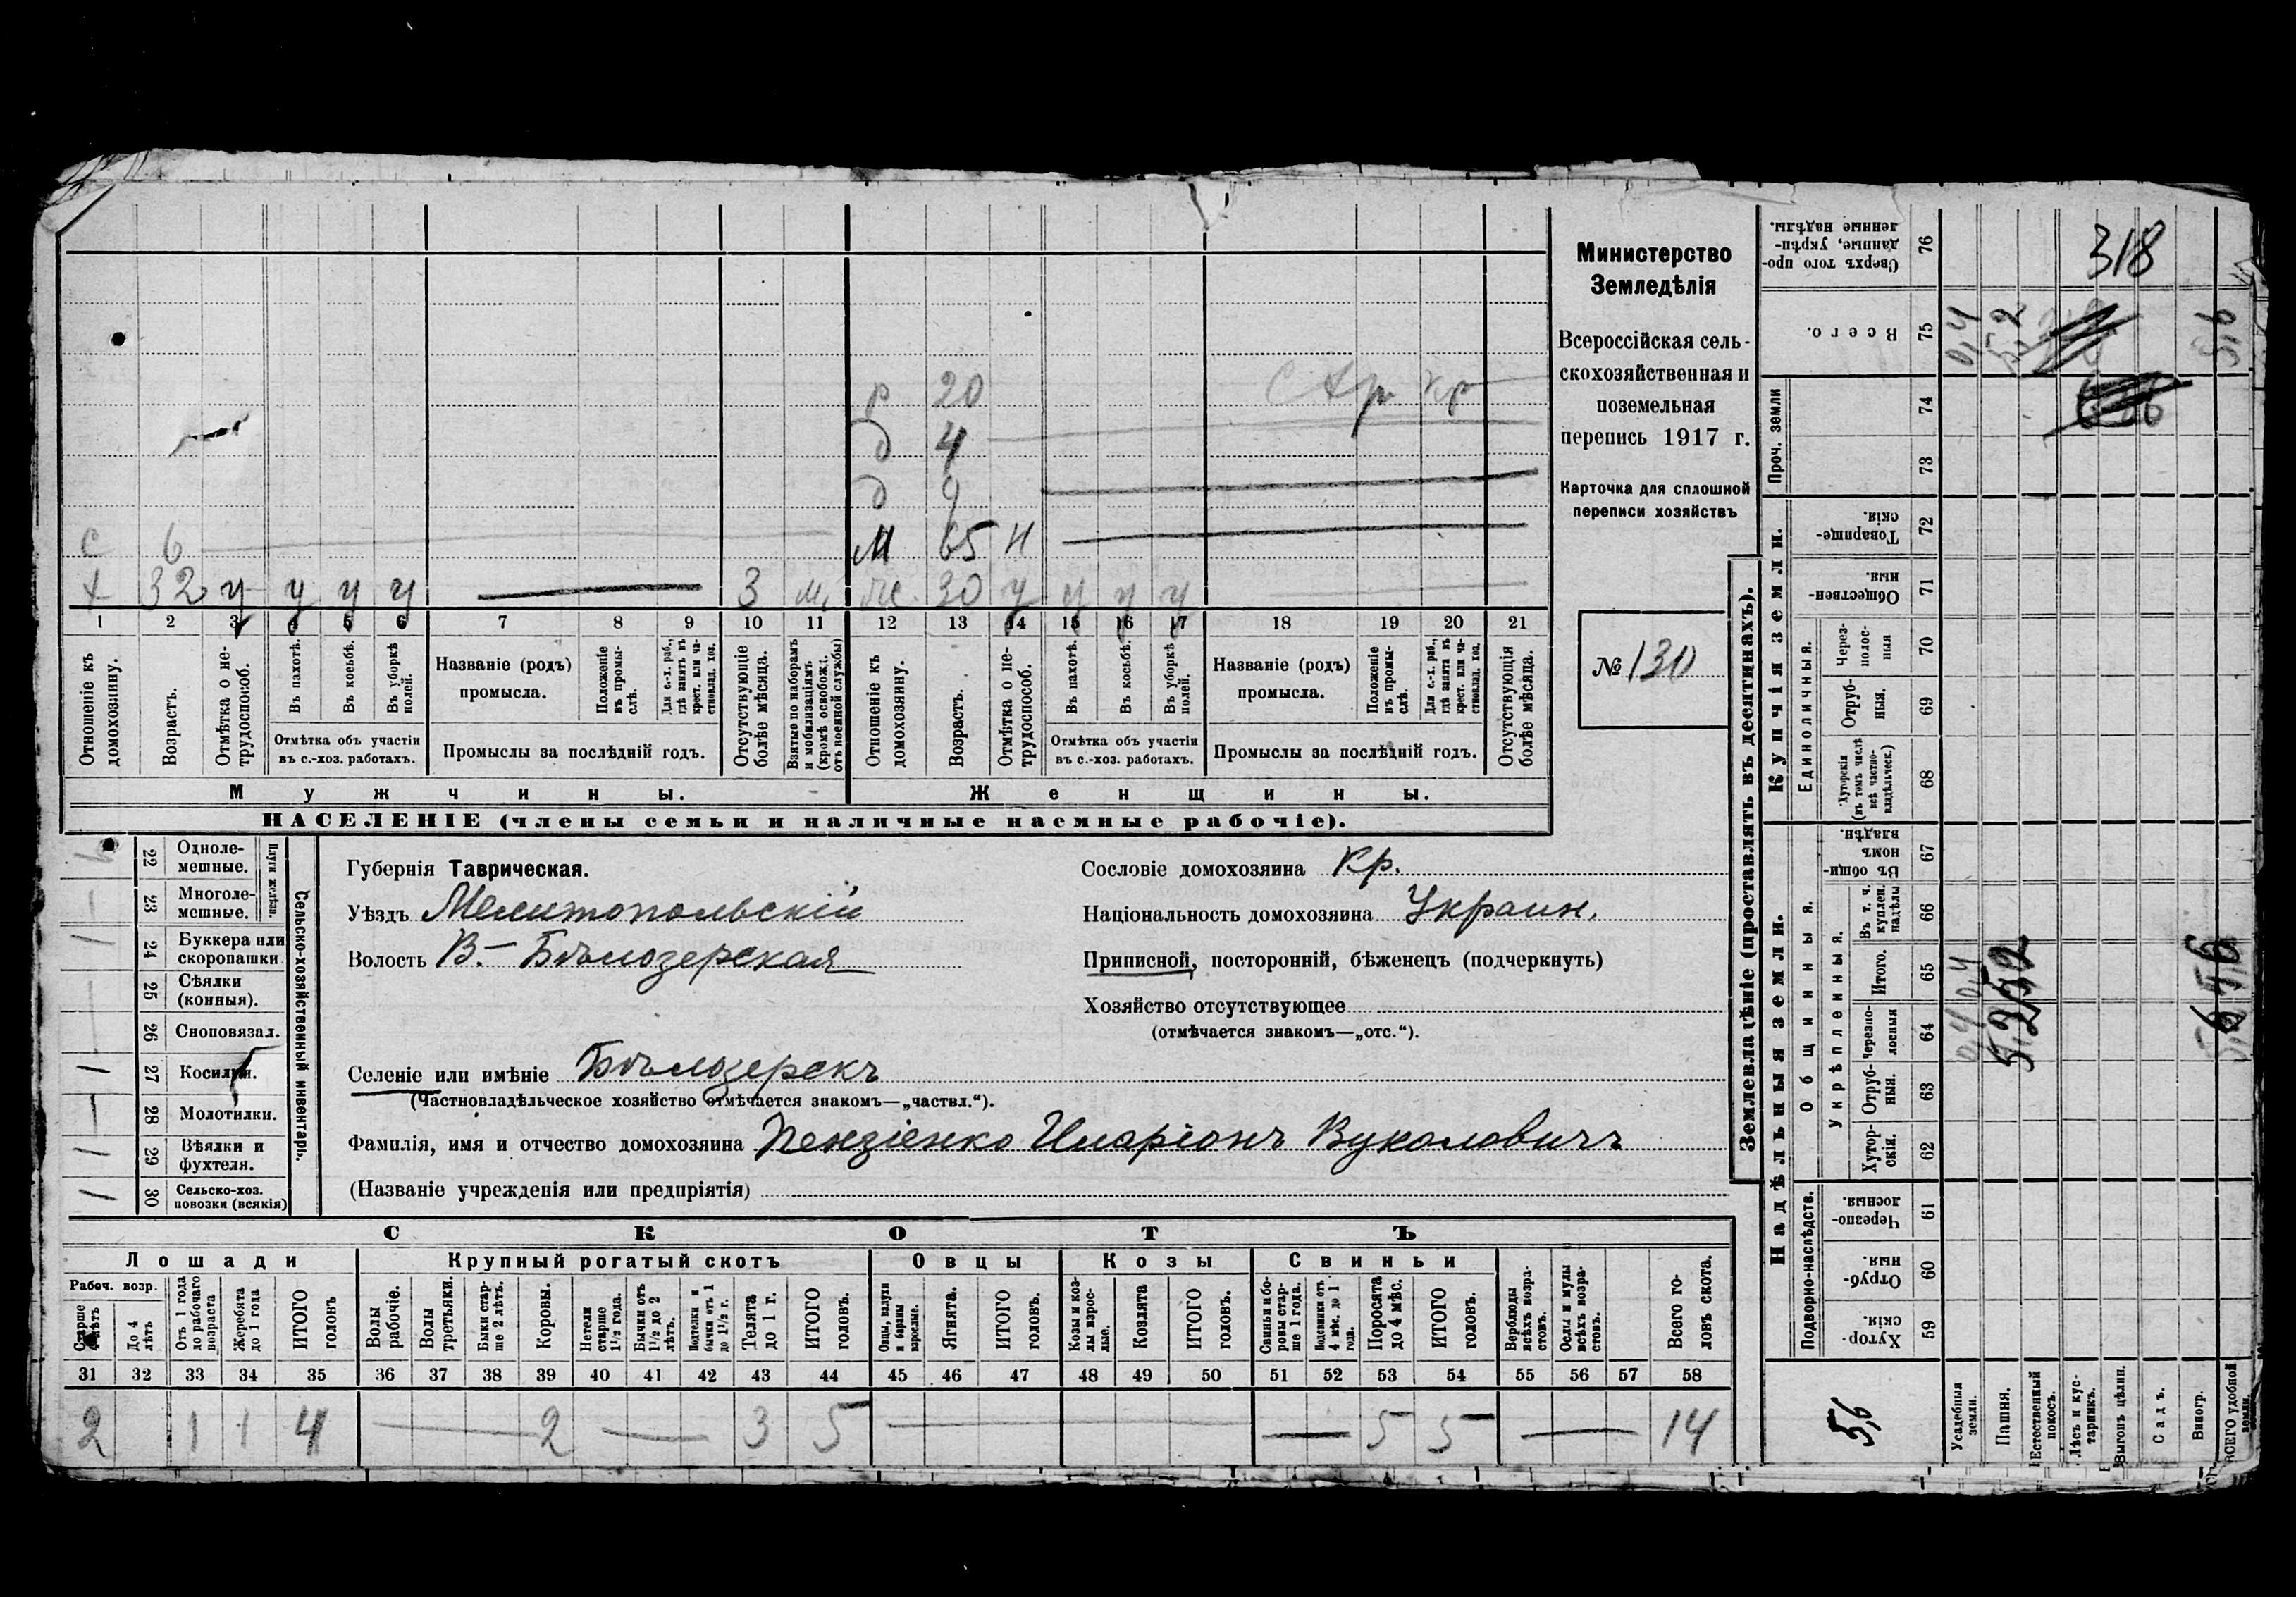 Министерство
Земледѣлія
Всероссійская сель-
скохозяйственная и
поземельная
перепись 1917 г.
Карточка для сплошной
переписи хозяйствъ
№ 130
р 20
д 4
д 9
с 6 М 65 н
х 32 у у у у 3 м. 30 у у у у
1 2 3 4 5 6 7 8 9 10 11 12 13 14 15 16 17 18 19 20 21
Отношеніе къ домохозяину.
Возрастъ.
Отмѣтка о не-трудоспособ.
Въ пахотѣ.
Въ косьбѣ.
Въ уборкѣ полей.
Отмѣтка объ участіи
въ с.-хоз. работахъ.
Названіе (родъ)
промысла.
Положеніе въ промы-слѣ.
Для с.-х. раб., гдѣ занятъ въ крест. или ча-стновлад. хоз.
Промыслы за послѣдній годъ.
Отсутствующіе болѣе мѣсяца.
Взятые по наборамъ и мобилизаціямъ (кромѣ освобожд. отъ военной службы)
Отношеніе къ домохозяину.
Возрастъ.
Отмѣтка о не-трудоспособ.
Въ пахотѣ.
Въ косьбѣ.
Въ уборкѣ полей.
Отмѣтка объ участіи
въ с.-хоз. работахъ.
Названіе (родъ)
промысла.
Положеніе въ промы-слѣ.
Для с.-х. раб., гдѣ занята въ крест. или ча-стновлад. хоз.
Промыслы за послѣдній годъ.
Отсутствующія болѣе мѣсяца.
Мужчины. Женщины.
НАСЕЛЕНІЕ (члены семьи и наличные наемные рабочіе).
Сельско-хозяйственный инвентарь.
Плуги желѣзн.
22 Одноле-мешные.
23 Многоле-мешные.
24 Буккера или скоропашки
25 Сѣялки (конныя).
26 Сноповязал.
27 Косилки.
28 Молотилки.
29 Вѣялки и фухтеля.
30 Сельско-хоз. повозки (всякія)
Губернія Таврическая.
Уѣздъ Мелитопольскій
Волость В.- Бѣлозерская
Селеніе или имѣніе Бѣлозерскъ
(Частновладѣльческое хозяйство отмѣчается знакомъ—„частвл.“).
Фамилія, имя и отчество домохозяина Пензіенко Иларіонъ Вуколовичъ
(Названіе учрежденія или предпріятія)
Сословіе домохозяина Кр.
Національность домохозяина Украин.
Приписной, посторонній, бѣженецъ (подчеркнуть)
Хозяйство отсутствующее
(отмѣчается знакомъ—„отс.“).
СКОТЪ
Лошади Крупный рогатый скотъ Овцы Козы Свиньи
Рабоч. возр.
До 4 лѣтъ
Отъ 1 года до рабочаго возраста
Жеребята до 1 года
ИТОГО головъ
Волы рабочіе.
Волы третьяки.
Быки стар-ше 2 лѣтъ.
Коровы.
Нетели старше 1½ года.
Бычки отъ 1½ до 2 лѣтъ.
Подтелки и бычки отъ 1 до 1½ г.
Телята до 1 г.
ИТОГО головъ.
Овцы, валухи и бараны взрослые.
Ягнята.
ИТОГО головъ.
Козы и коз-лы взрос-лые.
Козлята
ИТОГО головъ.
Свиньи и бо-ровы стар-ше 1 года.
Подсвинки отъ 4 мѣс. до 1 года.
Поросята до 4 мѣс.
ИТОГО головъ.
Верблюды всѣхъ возра-стовъ.
Ослы и мулы всѣхъ возра-стовъ.
Всего го-ловъ скота.
31 32 33 34 35 36 37 38 39 40 41 42 43 44 45 46 47 48 49 50 51 52 53 54 55 56 57 58
2 1 1 4 2 3 5 5 5 14
Землевладѣніе (проставлять въ десятинахъ).
Купчія земли.
Надѣльныя земли.
Проч. земли
Единоличныя.
Общинныя.
Укрѣпленныя.
Подворно-наслѣдств.
76 Сверхъ того про-данные, укрѣп-ленные надѣлы. 318
75 Всего. 0,4 5,2 5,6
74
73
72 Товарище-скія.
71 Обществен-ныя
70 Через-полос-ныя
69 Отруб-ныя.
68 Хуторскія (въ томъ числѣ всѣ частно-владѣльческ.)
67 Въ общи-номъ владѣн.
66 Въ т. ч. куплен. надѣлы
65 Итого. 0,4 5,2 5,6
64 Черезпо-лосныя 0,4 5,2 5,6
63 Отруб-ныя.
62 Хутор-скія.
61 Черезпо-лосныя
60 Отруб-ныя.
59 Хутор-скія.
5,6
Усадебныя земли.
Пашня.
Естественный покосъ.
Лѣсъ и кус-тарникъ.
Выгонъ цѣлин.
Садъ.
Виногр.
ВСЕГО удобной земли.